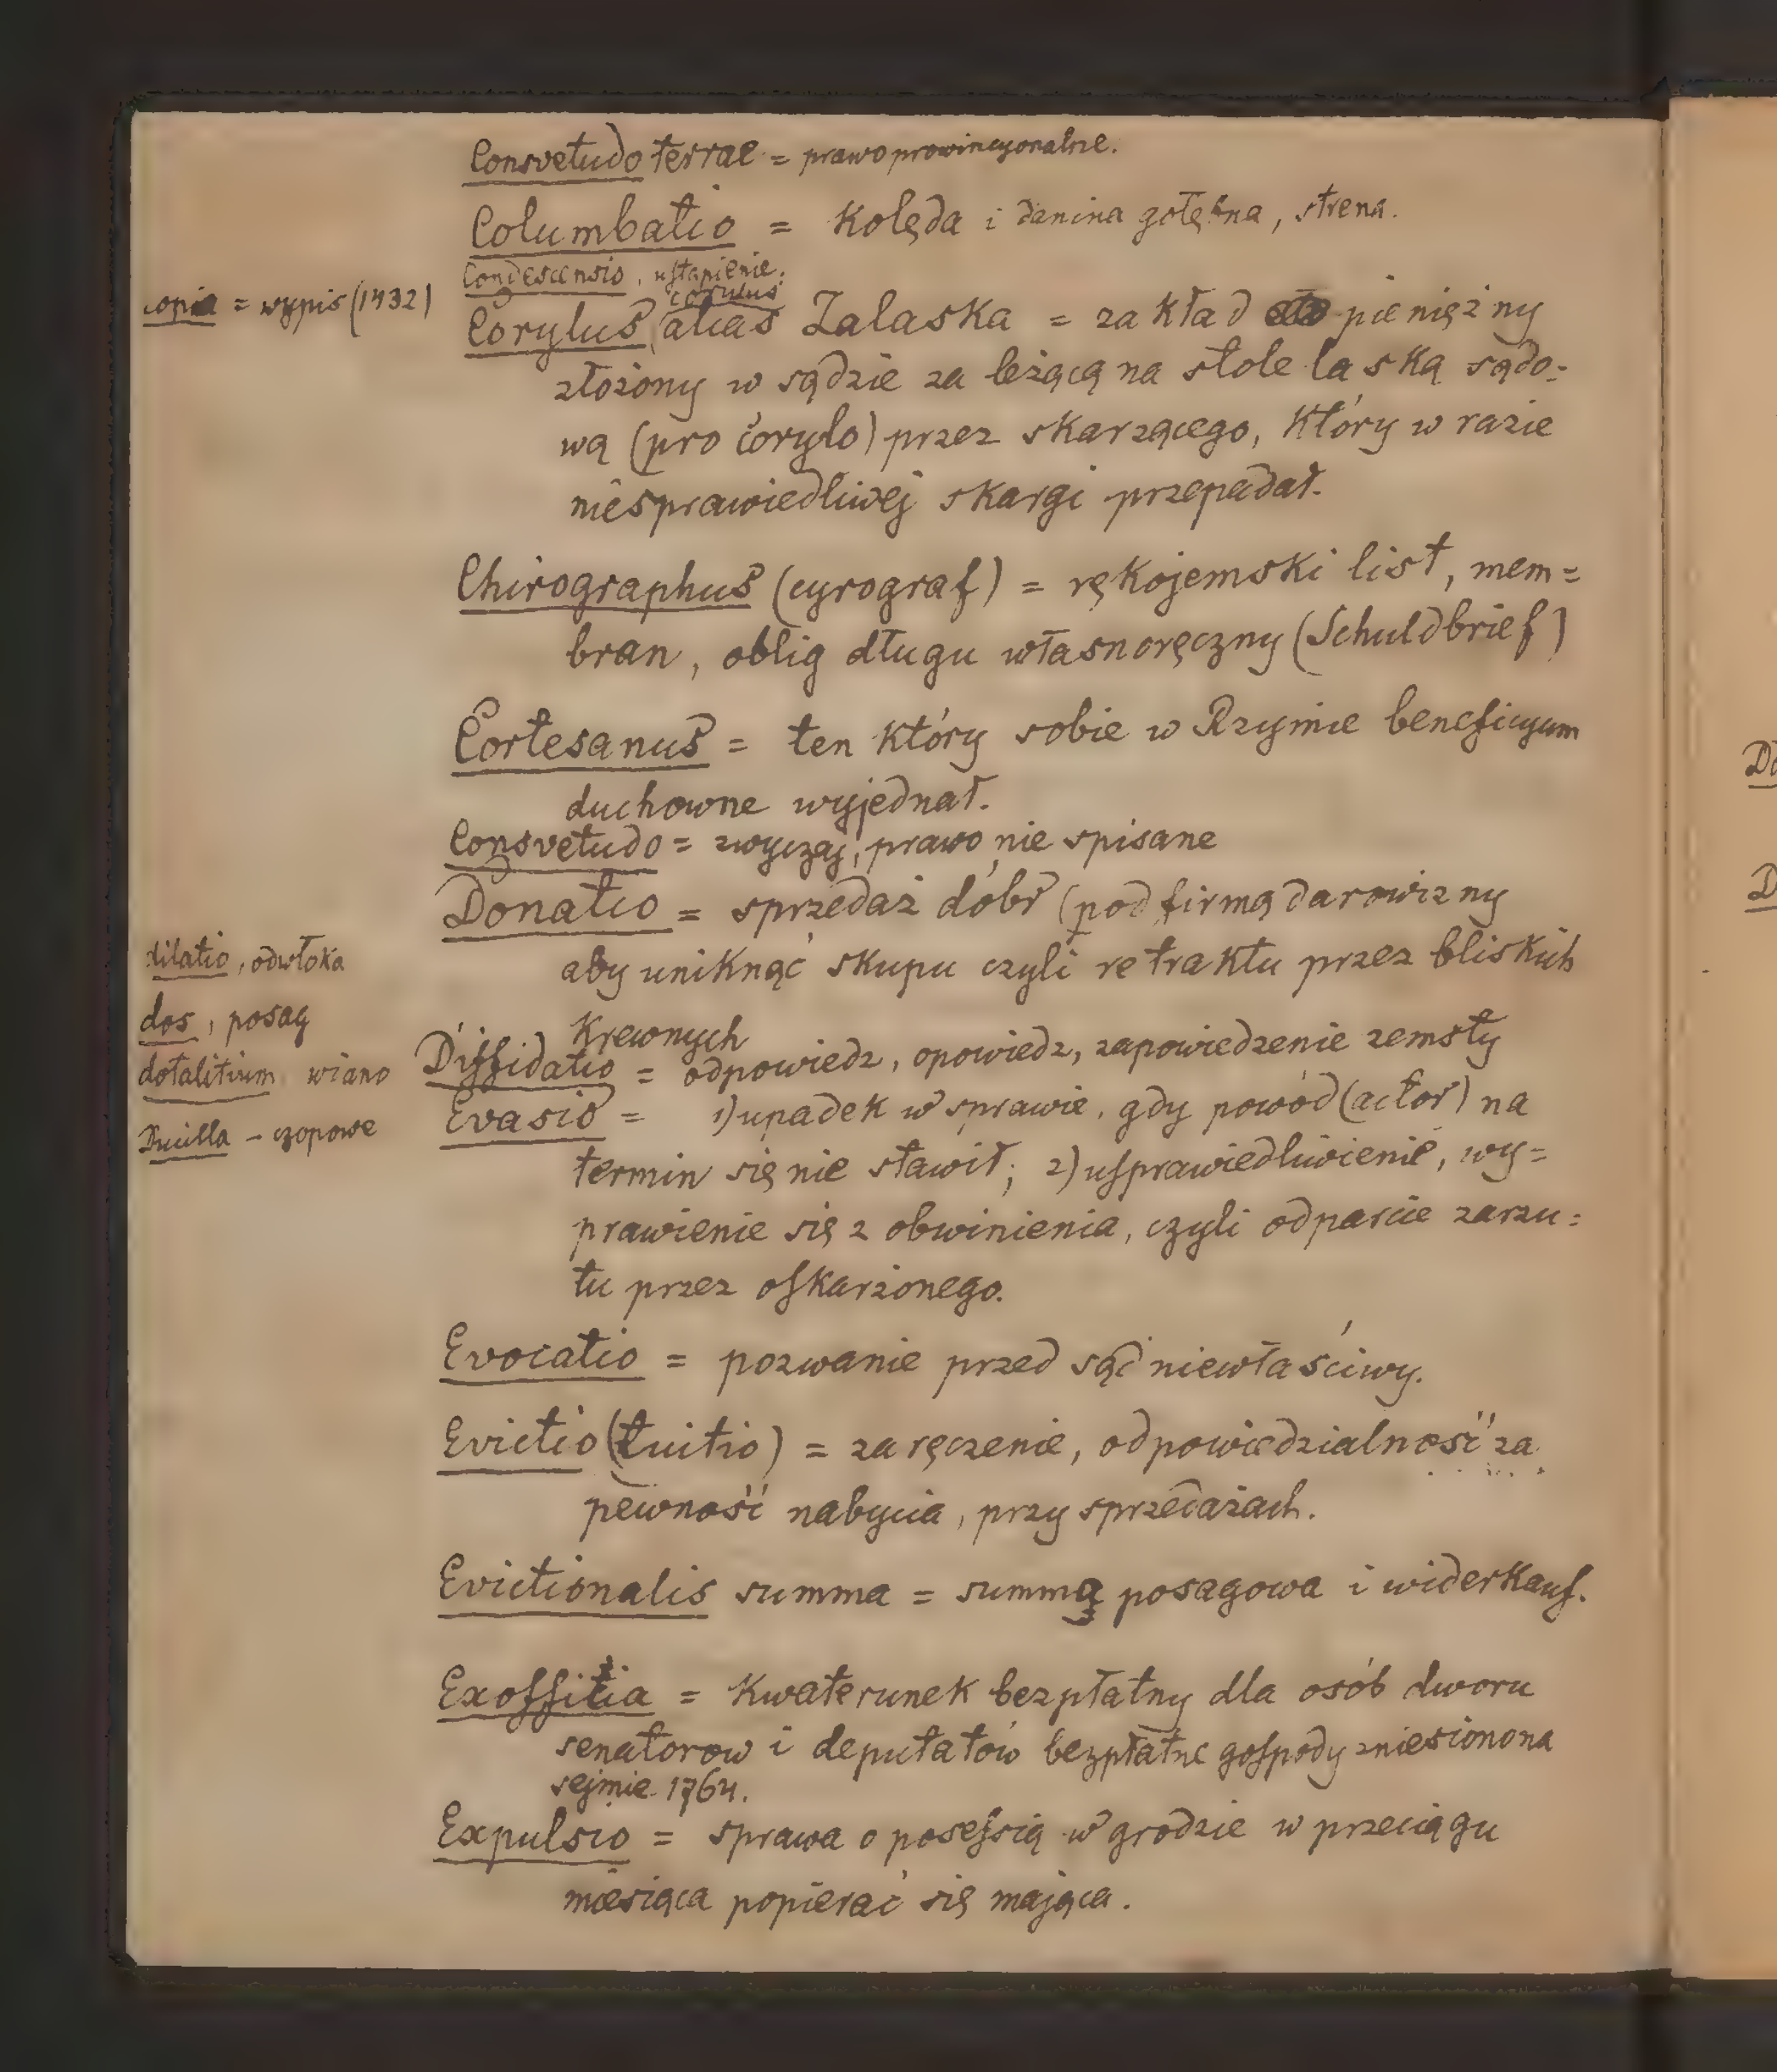 Consvetudo terrae = prawo prowincyonalne.
Columbatio = Kolęda i danina gołębna, strena.
Condescensio, ustąpienie.
copia = wypis (1432)
corulus
Corylus, alias Zalaska = zakład pieniężny
złożony w sądzie za leżącą na stole laską sądo=
wą (pro corylo) przez skarzącego, który w razie
niesprawiedliwej skargi przepadał.
Chirographus (cyrograf) = rękojemski list, mem=
bran, oblig długu własnoręczny (Schuldbrief)
Cortesanus = ten który sobie w Rzymie beneficyum
duchowne wyjednał.
Consvetudo = zwyczaj, prawo nie spisane
Donatio = sprzedaż dóbr (pod firmą darowizny
aby uniknąć skupu czyli retraktu przez bliskich
krewnych
dilatio, odwłoka
dos, posag
dotalitium wiano
Ducilla - czopowe
Diffidatio = odpowiedz, opowiedz, zapowiedzenie zemsty
Evasio = 1) upadek w sprawie, gdy powód (actor) na
termin się nie stawił; 2) usprawiedliwienie, wy=
prawienie się z obwinienia, czyli odparcie zarzu=
tu przez oskarżonego.
Evocatio = pozwanie przed sąd niewłaściwy.
Evictio (tuitio) = zaręczenie, odpowiedzialność za
pewność nabycia, przy sprzedażach.
Evictionalis summa = summa posagowa i widerkauf.
Exoffitia = Kwaterunek bezpłatny dla osób dworu
senatorow i deputatów bezpłatne gospody zniesiono na
sejmie 1764.
Expulsio = sprawa o posesją w grodzie w przeciągu
miesiąca popierać się mająca.